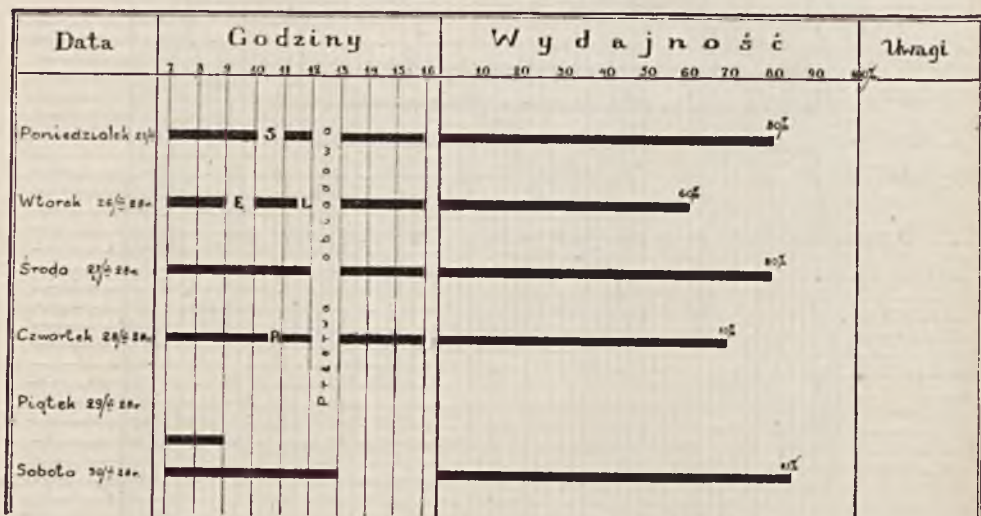 Data Godziny Wydajność Uwagi
7 8 9 10 11 12 13 14 15 16 10 20 30 40 50 60 70 80 90 100%
Poniedziałek S 80%
Wtorek E L 60%
Środa 80%
Czwartek P
Piątek 29/ 28r.
Sobota
Przerwa obiadowa